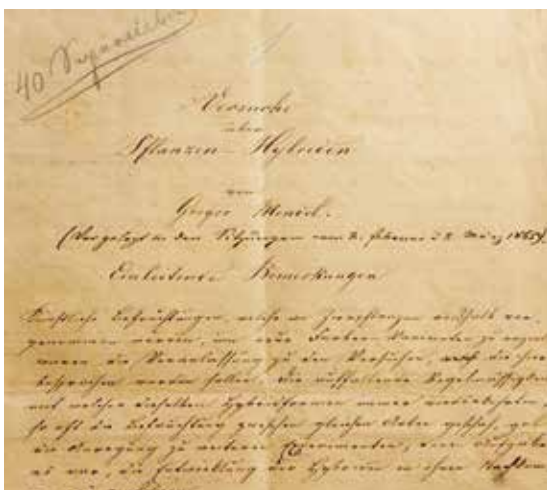 40
Versuche
über
Pflanzen-Hybriden
von
Gregor Mendel.
(Vorgelegt in den Sitzungen vom 8. Februar u 8. März 1865)
Einleitende Bemerkungen
Künstliche Befruchtungen, welche an Zierpflanzen deshalb vor-
genommen wurden, um neue Farben-Varianten zu erziel
waren die Veranlassung zu den Versuchen, die hier
besprochen werden sollen. Die auffallende Regelmässigkeit
mit welcher dieselben Hybridformen immer wiederkehrten,
so oft die Befruchtung zwischen gleichen Arten geschah, gab
die Anregung zu weiteren Experimenten, deren Aufgabe
es war, die Entwicklung der Hybriden in ihren Nachkom